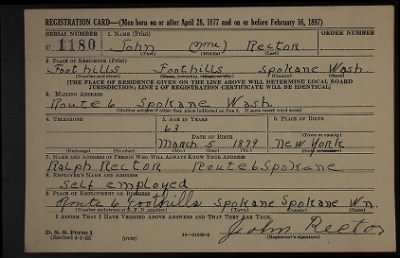 REGISTRATION CARD—(Men born on or after April 28, 1877 and on or before February 16, 1897)
SERIAL NUMBER 1. NAME (Print) ORDER NUMBER
U 1180 John (none) Rector
(First) (Middle) (Last)
2. PLACE OF RESIDENCE (Print)
Foothills Foothills Spokane Wash.
(Number and street) (Town, township, village, or city) (County) (State)
[THE PLACE OF RESIDENCE GIVEN ON THE LINE ABOVE WILL DETERMINE LOCAL BOARD
JURISDICTION; LINE 2 OF REGISTRATION CERTIFICATE WILL BE IDENTICAL]
3. MAILING ADDRESS
Route 6 Spokane Wash.
[Mailing address if other than place indicated on line 2. If same insert word same]
4. TELEPHONE 5. AGE IN YEARS 6. PLACE OF BIRTH
63
DATE OF BIRTH (Town or county)
March 5 1879 New York
(Mo.) (Day) (Yr.) (State or country)
7. NAME AND ADDRESS OF PERSON WHO WILL ALWAYS KNOW YOUR ADDRESS
Ralph Rector Route 6 Spokane
8. EMPLOYER'S NAME AND ADDRESS
Self employed
9. PLACE OF EMPLOYMENT OR BUSINESS
Route 6 Foothills Spokane Spokane Wn.
(Number and street or R. F. D. number) (Town) (County) (State)
I AFFIRM THAT I HAVE VERIFIED ABOVE ANSWERS AND THAT THEY ARE TRUE.
John Rector
D. S. S. Form 1
(Revised 4-1-42) (over) (Registrant's signature)